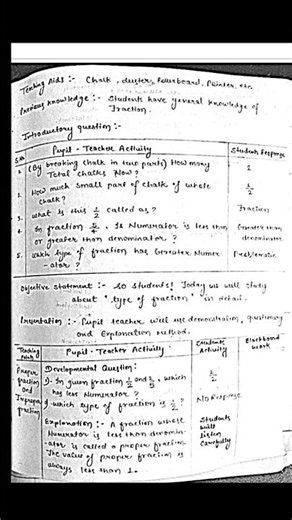 Teaching Aids :- Chalk, duster, Rollerboard, Pointer, etc.
Previous knowledge :- Students have general knowledge of
Fraction.
Introductory question :-
S.No Pupil - Teacher Activity Students Response
1. (By breaking chalk in two parts) How many
Total chalks Now? 2
2. How much small part of chalk of whole
chalk? 1/2
3. What is this 1/2 called as? Fraction
4. In fraction 5/4, Is Numerator is less than
or greater than denominator? Greater than denominator
5. Which type of fraction has Greater Numer-
ator? Problematic
Objective Statement :- So Students! Today we will study
about "type of fraction" in detail.
Presentation :- Pupil teacher will use demonstration, questionary
and Explanation method.
Teaching Point Pupil - Teacher Activity Students Activity Blackboard Work
Proper fraction and Improper fraction
Developmental Question :-
1). In given fraction 1/2 and 2/2, which
has less Numerator? 1/2
2). which type of fraction is 1/2? No Response
Explanation :- A fraction whose
Numerator is less than denomin-
ator is called a proper fraction.
The value of proper fraction is
always less than 1.
Students will listen carefully